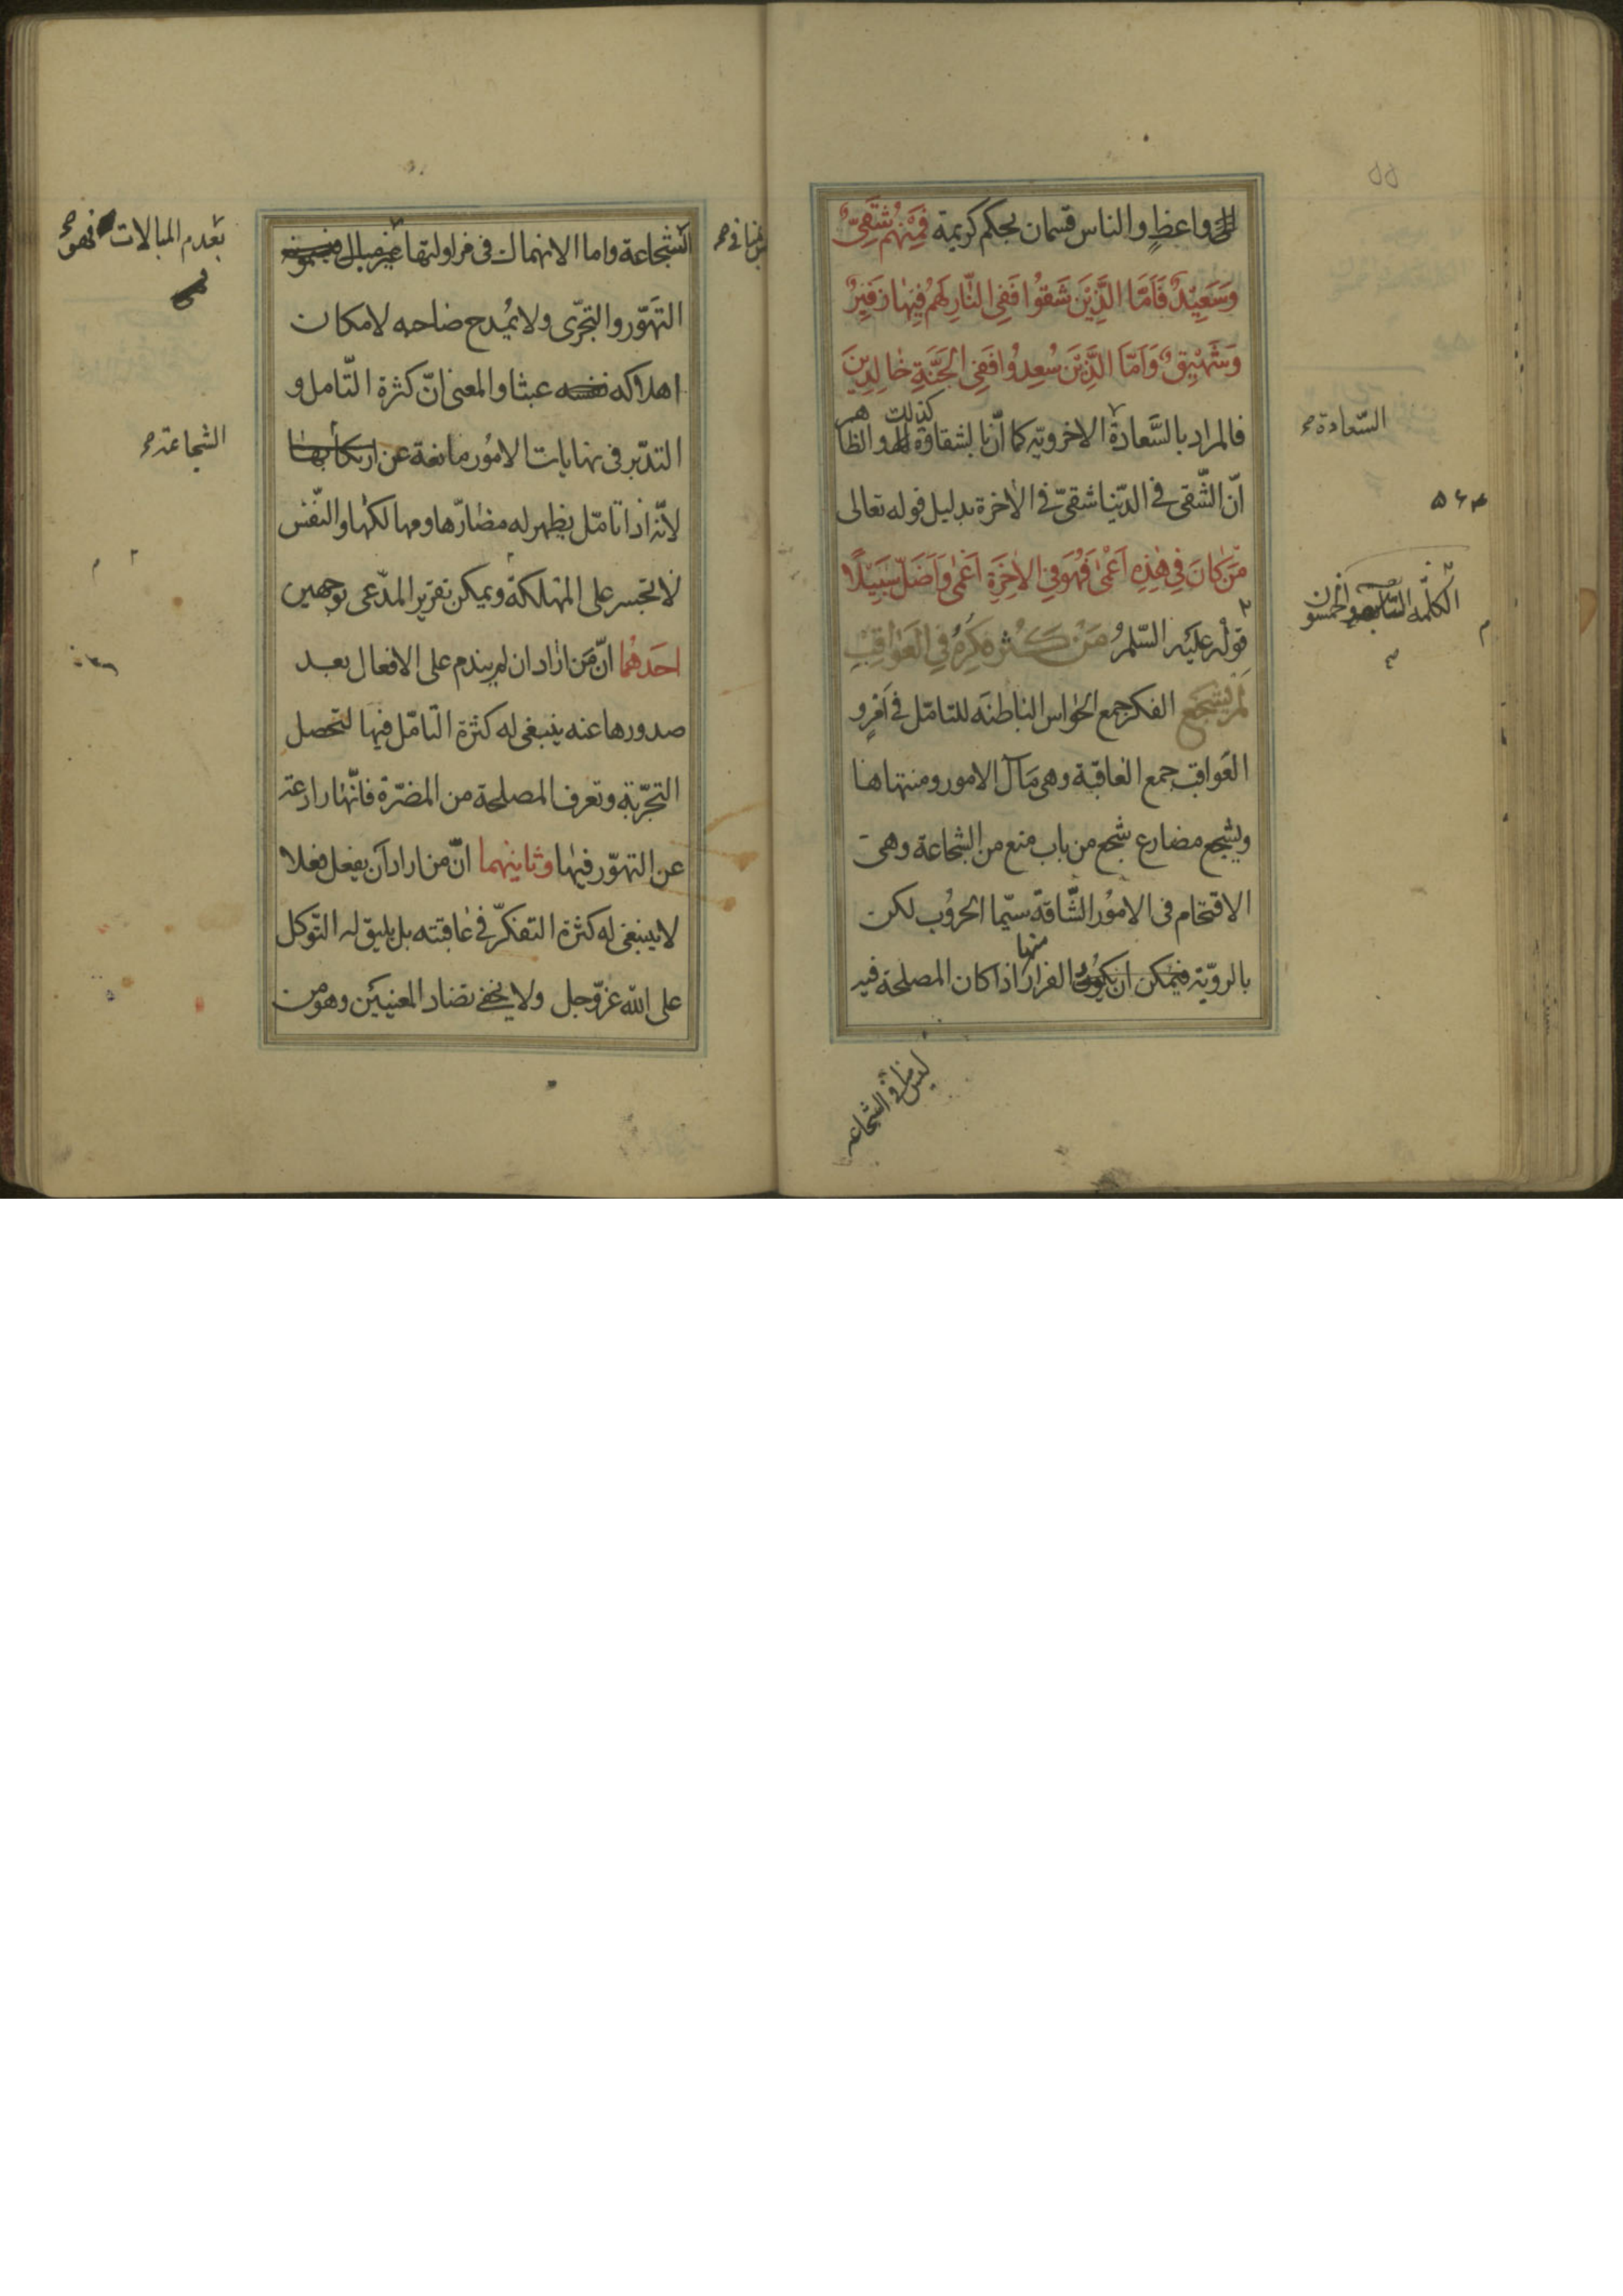 واعظ والناس قسمان بحكم كريمة فَمِنْهُمْ شَقِىٌّ
وَسَعِيْدٌ فَاَمَّا الَّذِيْنَ شَقُوْا فَفِى النَّارِ لَهُمْ فِيْهَا زَفِيْرٌ
وَشَهِيْقٌ وَاَمَّا الَّذِيْنَ سُعِدُوْا فَفِى الْجَنَّةِ خَالِدِيْنَ
فالمراد بالسَّعادة الاخرويّه كما انّ بالشقاوة كذلك والظاهر
انّ الشّقى فى الدّنيا شقىّ فى الاخرة بدليل قوله تعالى
مَنْ كَانَ فِى هٰذِهِ اَعْمٰى فَهُوَ فِى الاٰخِرَةِ اَعْمٰى وَاَضَلُّ سَبِيْلًا
قوله عليه السّلم مَنْ كَثُرَ فِكْرُهُ فِى الْعَوَاقِبِ
لَمْ يَشْجَعْ الفكر جمع الحواس الباطنه للتامّل فى امرٍ و
العَواقب جمع العاقبة وهى مَآل الامور ومنتهاها
ويشجع مضارع شجع من باب منع من الشجاعة وهى
الاقتحام فى الامُور الشّاقة سيّما الحرُوب لكن
بالرويّة فيمكن ان يكون الفرار منها اذا كان المصلحة فيه
ليس منافى الشجاعه
السّعادة صح
۵۶
الكلمة السّابعه والخمسون
۵۵
الشجاعة واما الانهماك فى مزاولتها غير مبال
التهوّر والتجرّى ولا يُمدح صاحبه لامكان
اهلاكه نفسه عبثا والمعنى انّ كثرة التّامل و
التدبّر فى نهايات الامُور مانعة عن ارتكابها
لانّه اذا تامّل يظهر له مضارّها ومهالكها والنّفس
لا تجسر على المهلكة ويمكن تقرير المدّعى بوجهين
احَدهُما انّ مَن اراد ان لم يندم على الافعال بعد
صدورها عنه ينبغى له كثرة التّامّل فيها لتحصل
التجرّبة وتعرف المصلحة من المضرّة فانّها رادعة
عن التهوّر فيها وثانيهما انّ من اراد ان يفعل فعلا
لا ينبغى له كثرة التفكّر فى عاقبته بل يليق له التّوكل
على الله عزّوجل ولا يخفى تضاد المعنيين وهو من
بعدم المبالات فهو صح
الشجاعة صح